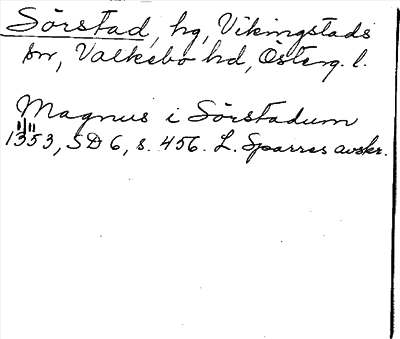 Sörstad, hg, Vikingstads
sn, Valkebo hd, Österg. l.
Magnus i Sörstadum
1353, SD 6, s. 456. L. Sparres avskr.